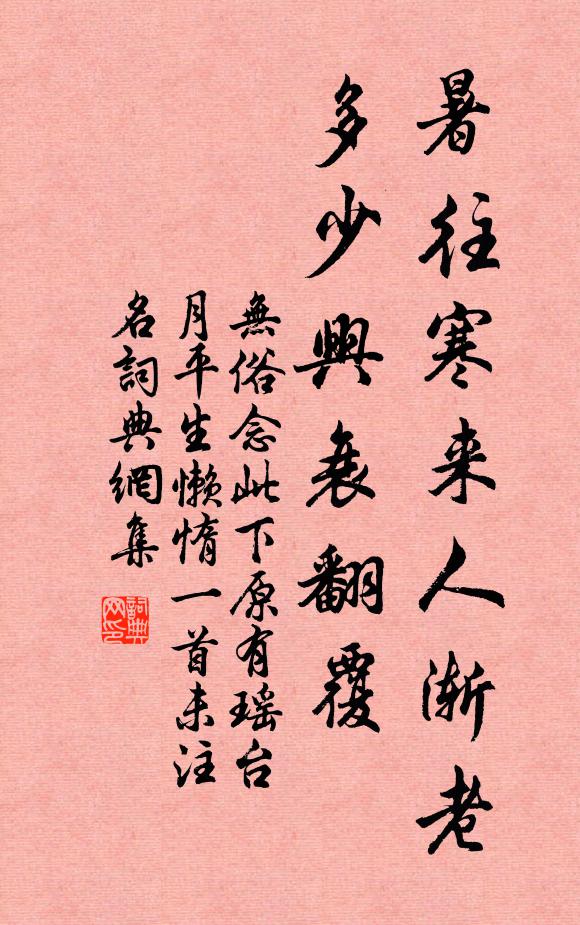 暑往寒来人渐老
多少興衰翻覆
無俗念此下原有瑶台
月平生懒惰一首未注
名詞典網集
詞典
网印